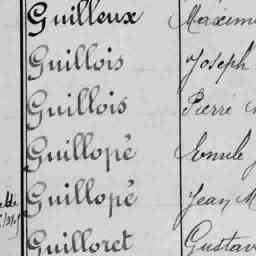 Guilleux
Guillois Joseph
Guillois Pierre
Guillopé Emile
Guillopé Jean M
Guilloret Gustav